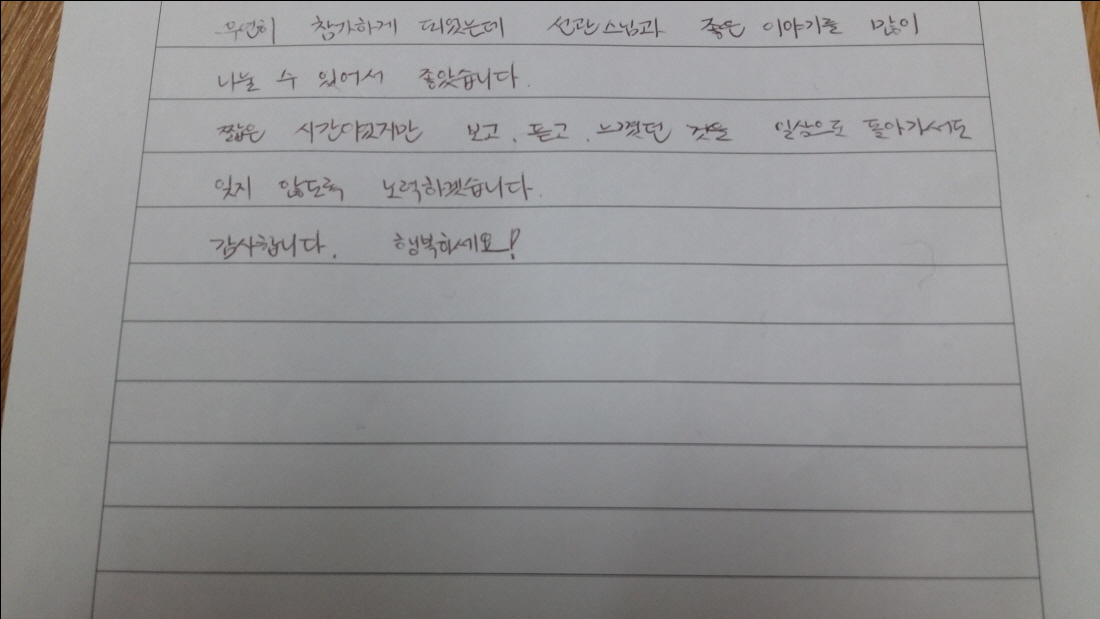 우연히 참가하게 되었는데 선관스님과 좋은 이야기를 많이
나눌 수 있어서 좋았습니다.
짧은 시간이였지만 보고, 듣고, 느꼈던 것을 일상으로 돌아가서도
잊지 않도록 노력하겠습니다.
감사합니다. 행복하세요!